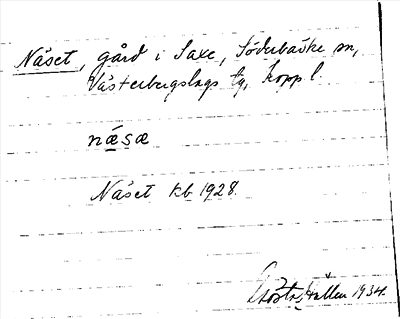 Näset, gård i Saxe, Söderbärke sn,
Västerbergslags tg, Kopp. l.
næsæ
Näset kb 1928.
Gösta Hallen 1934.